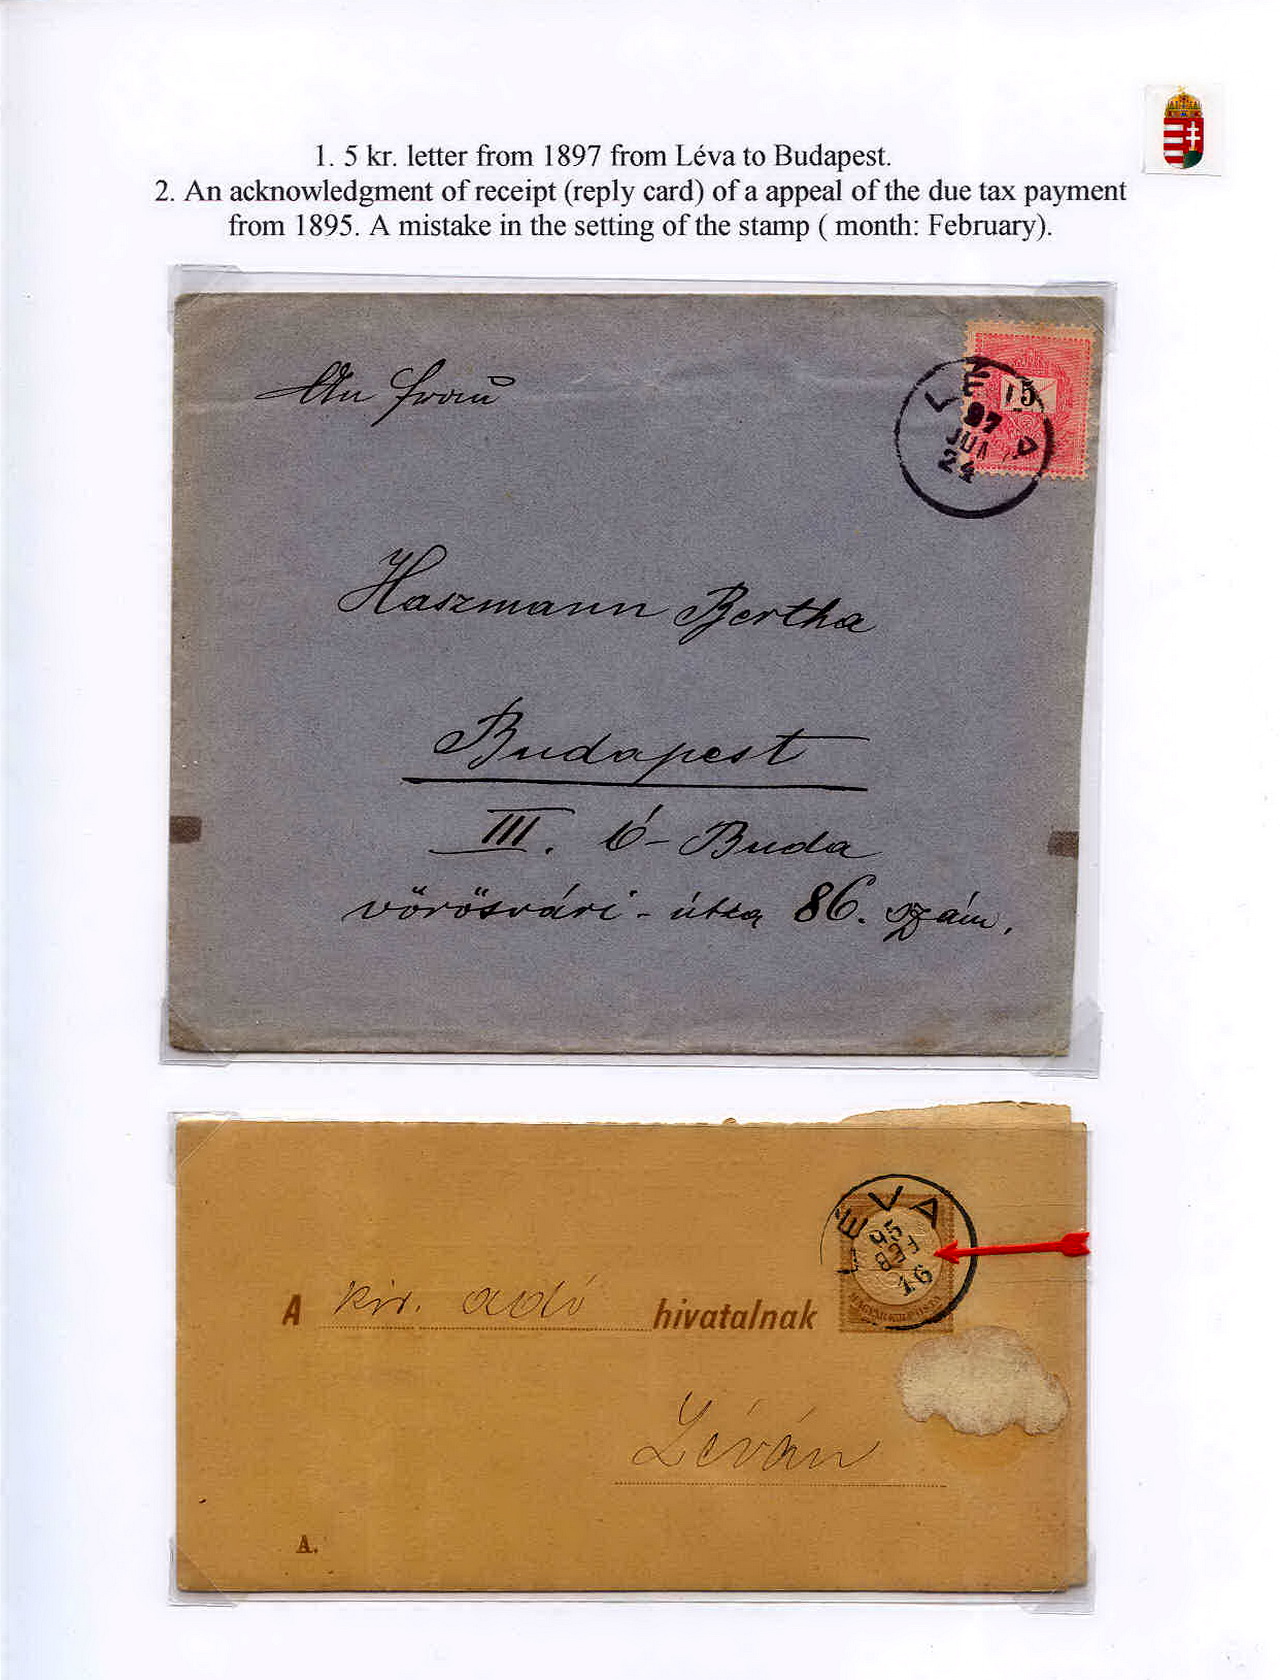 1. 5 kr. letter from 1897 from Léva to Budapest.
2. An acknowledgment of receipt (reply card) of a appeal of the due tax payment
from 1895. A mistake in the setting of the stamp ( month: February).
An Frau
5
LÉVA
97
24
Haszmann Bertha
Budapest
III. Ó-Buda
vörösvári-útca 86. szám.
LÉVA
95
FEB
16
A kir. adó hivatalnak
Léván
A.